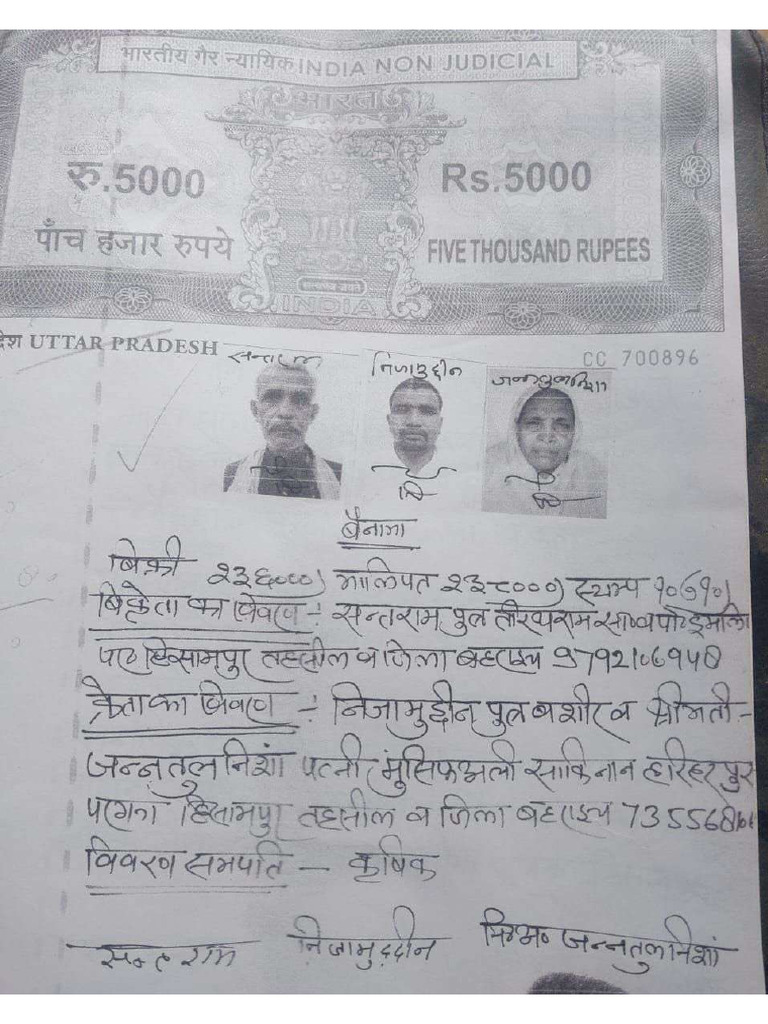 भारतीय गैर न्यायिक INDIA NON JUDICIAL
भारत
रु.5000 Rs.5000
पाँच हजार रुपये FIVE THOUSAND RUPEES
INDIA
देश UTTAR PRADESH
CC 700896
सन्तराम निजामुद्दीन जन्नतुलनिशा
बैनामा
बिक्री २३६०००) मालियत २३८०००) स्टाम्प
बिक्रेता का विवरण :- सन्तराम पुत्र तीरथराम
हिसामपुर तहसील व जिला बहराइच
क्रेता का विवरण :- निजामुद्दीन पुत्र बशीर व श्रीमती -
जन्नतुलनिशां पत्नी मुंसिफअली साकिनान हरिहरपुर
परगना हिसामपुर तहसील व जिला बहराइच
विवरण सम्पति - कृषिक
सन्तराम निजामुद्दीन जन्नतुलनिशां